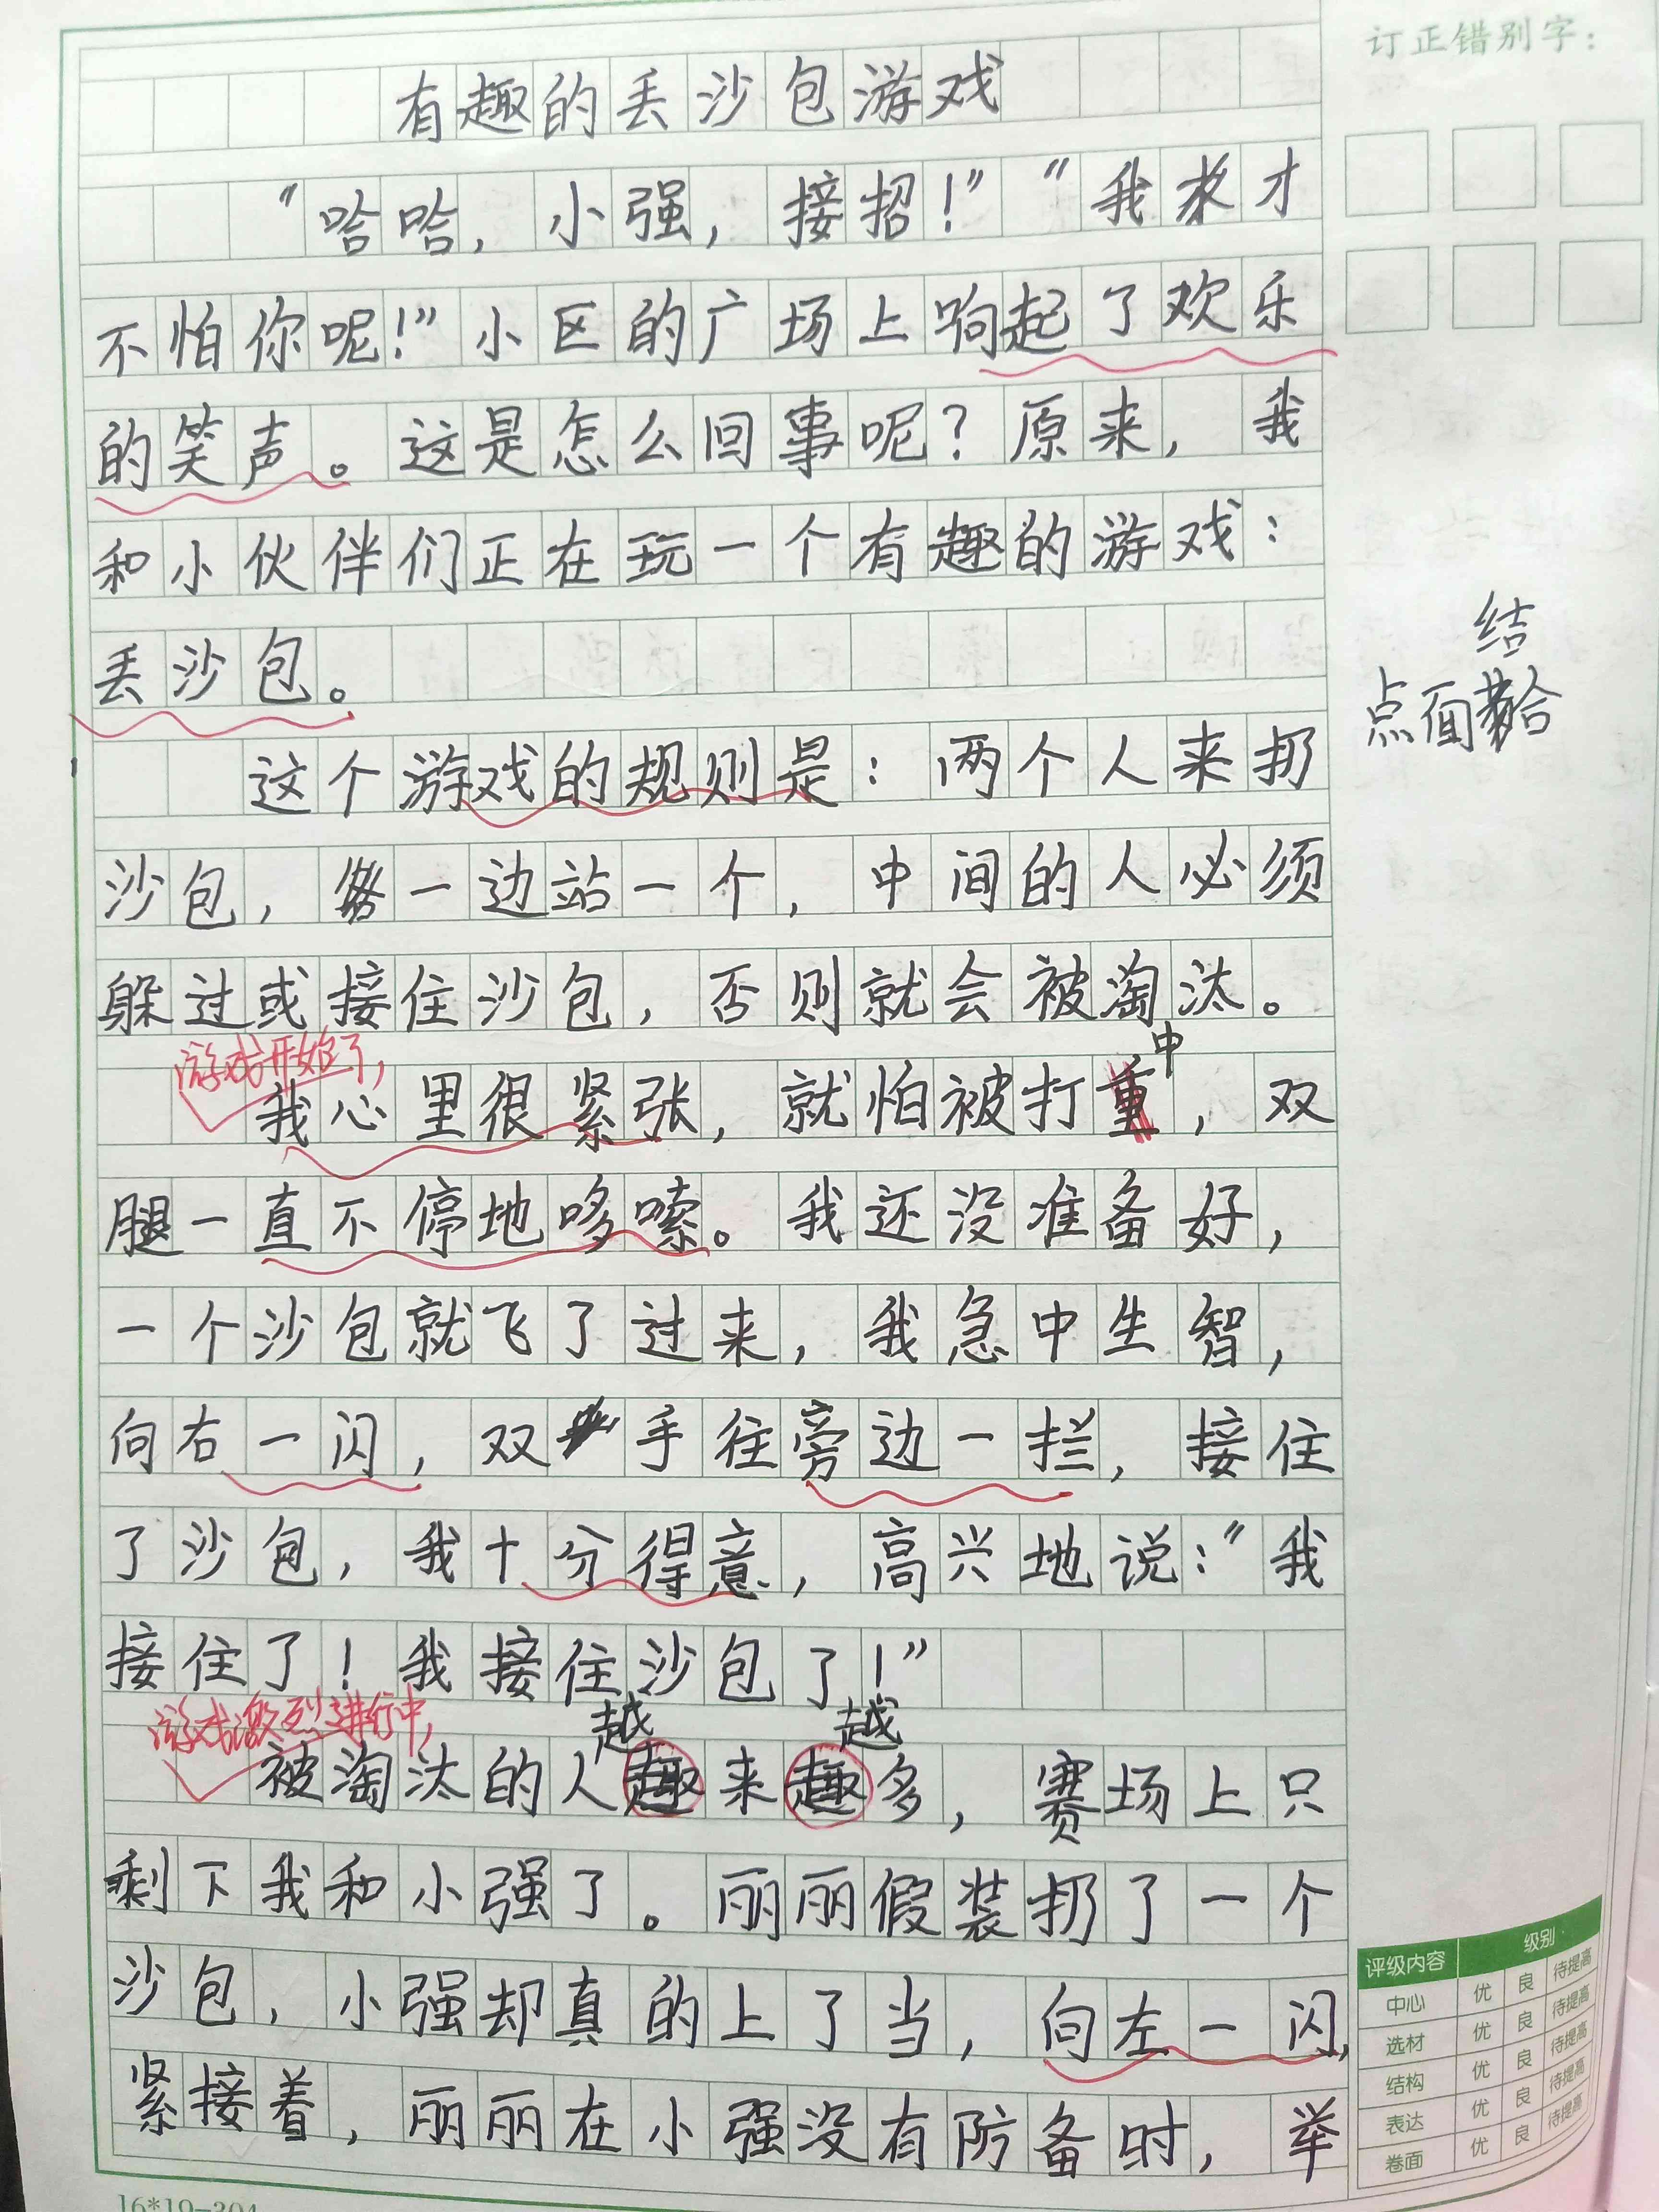 订正错别字：
有趣的丢沙包游戏
“哈哈，小强，接招！”“我才
不怕你呢！”小区的广场上响起了欢乐
的笑声。这是怎么回事呢？原来，我
和小伙伴们正在玩一个有趣的游戏：
丢沙包。
结
点面合
这个游戏的规则是：两个人来扔
沙包，各一边站一个，中间的人必须
躲过或接住沙包，否则就会被淘汰。
游戏开始了，
中
我心里很紧张，就怕被打重，双
腿一直不停地哆嗦。我还没准备好，
一个沙包就飞了过来，我急中生智，
向右一闪，双手往旁边一拦，接住
了沙包，我十分得意，高兴地说：“我
接住了！我接住沙包了！”
游戏激烈进行中，
越 越
被淘汰的人趣来趣多，赛场上只
剩下我和小强了。丽丽假装扔了一个
沙包，小强却真的上了当，向左一闪，
紧接着，丽丽在小强没有防备时，举
评级内容 级别
中心 优 良 待提高
选材 优 良 待提高
结构 优 良 待提高
表达 优 良 待提高
卷面 优 良 待提高
16*19-304